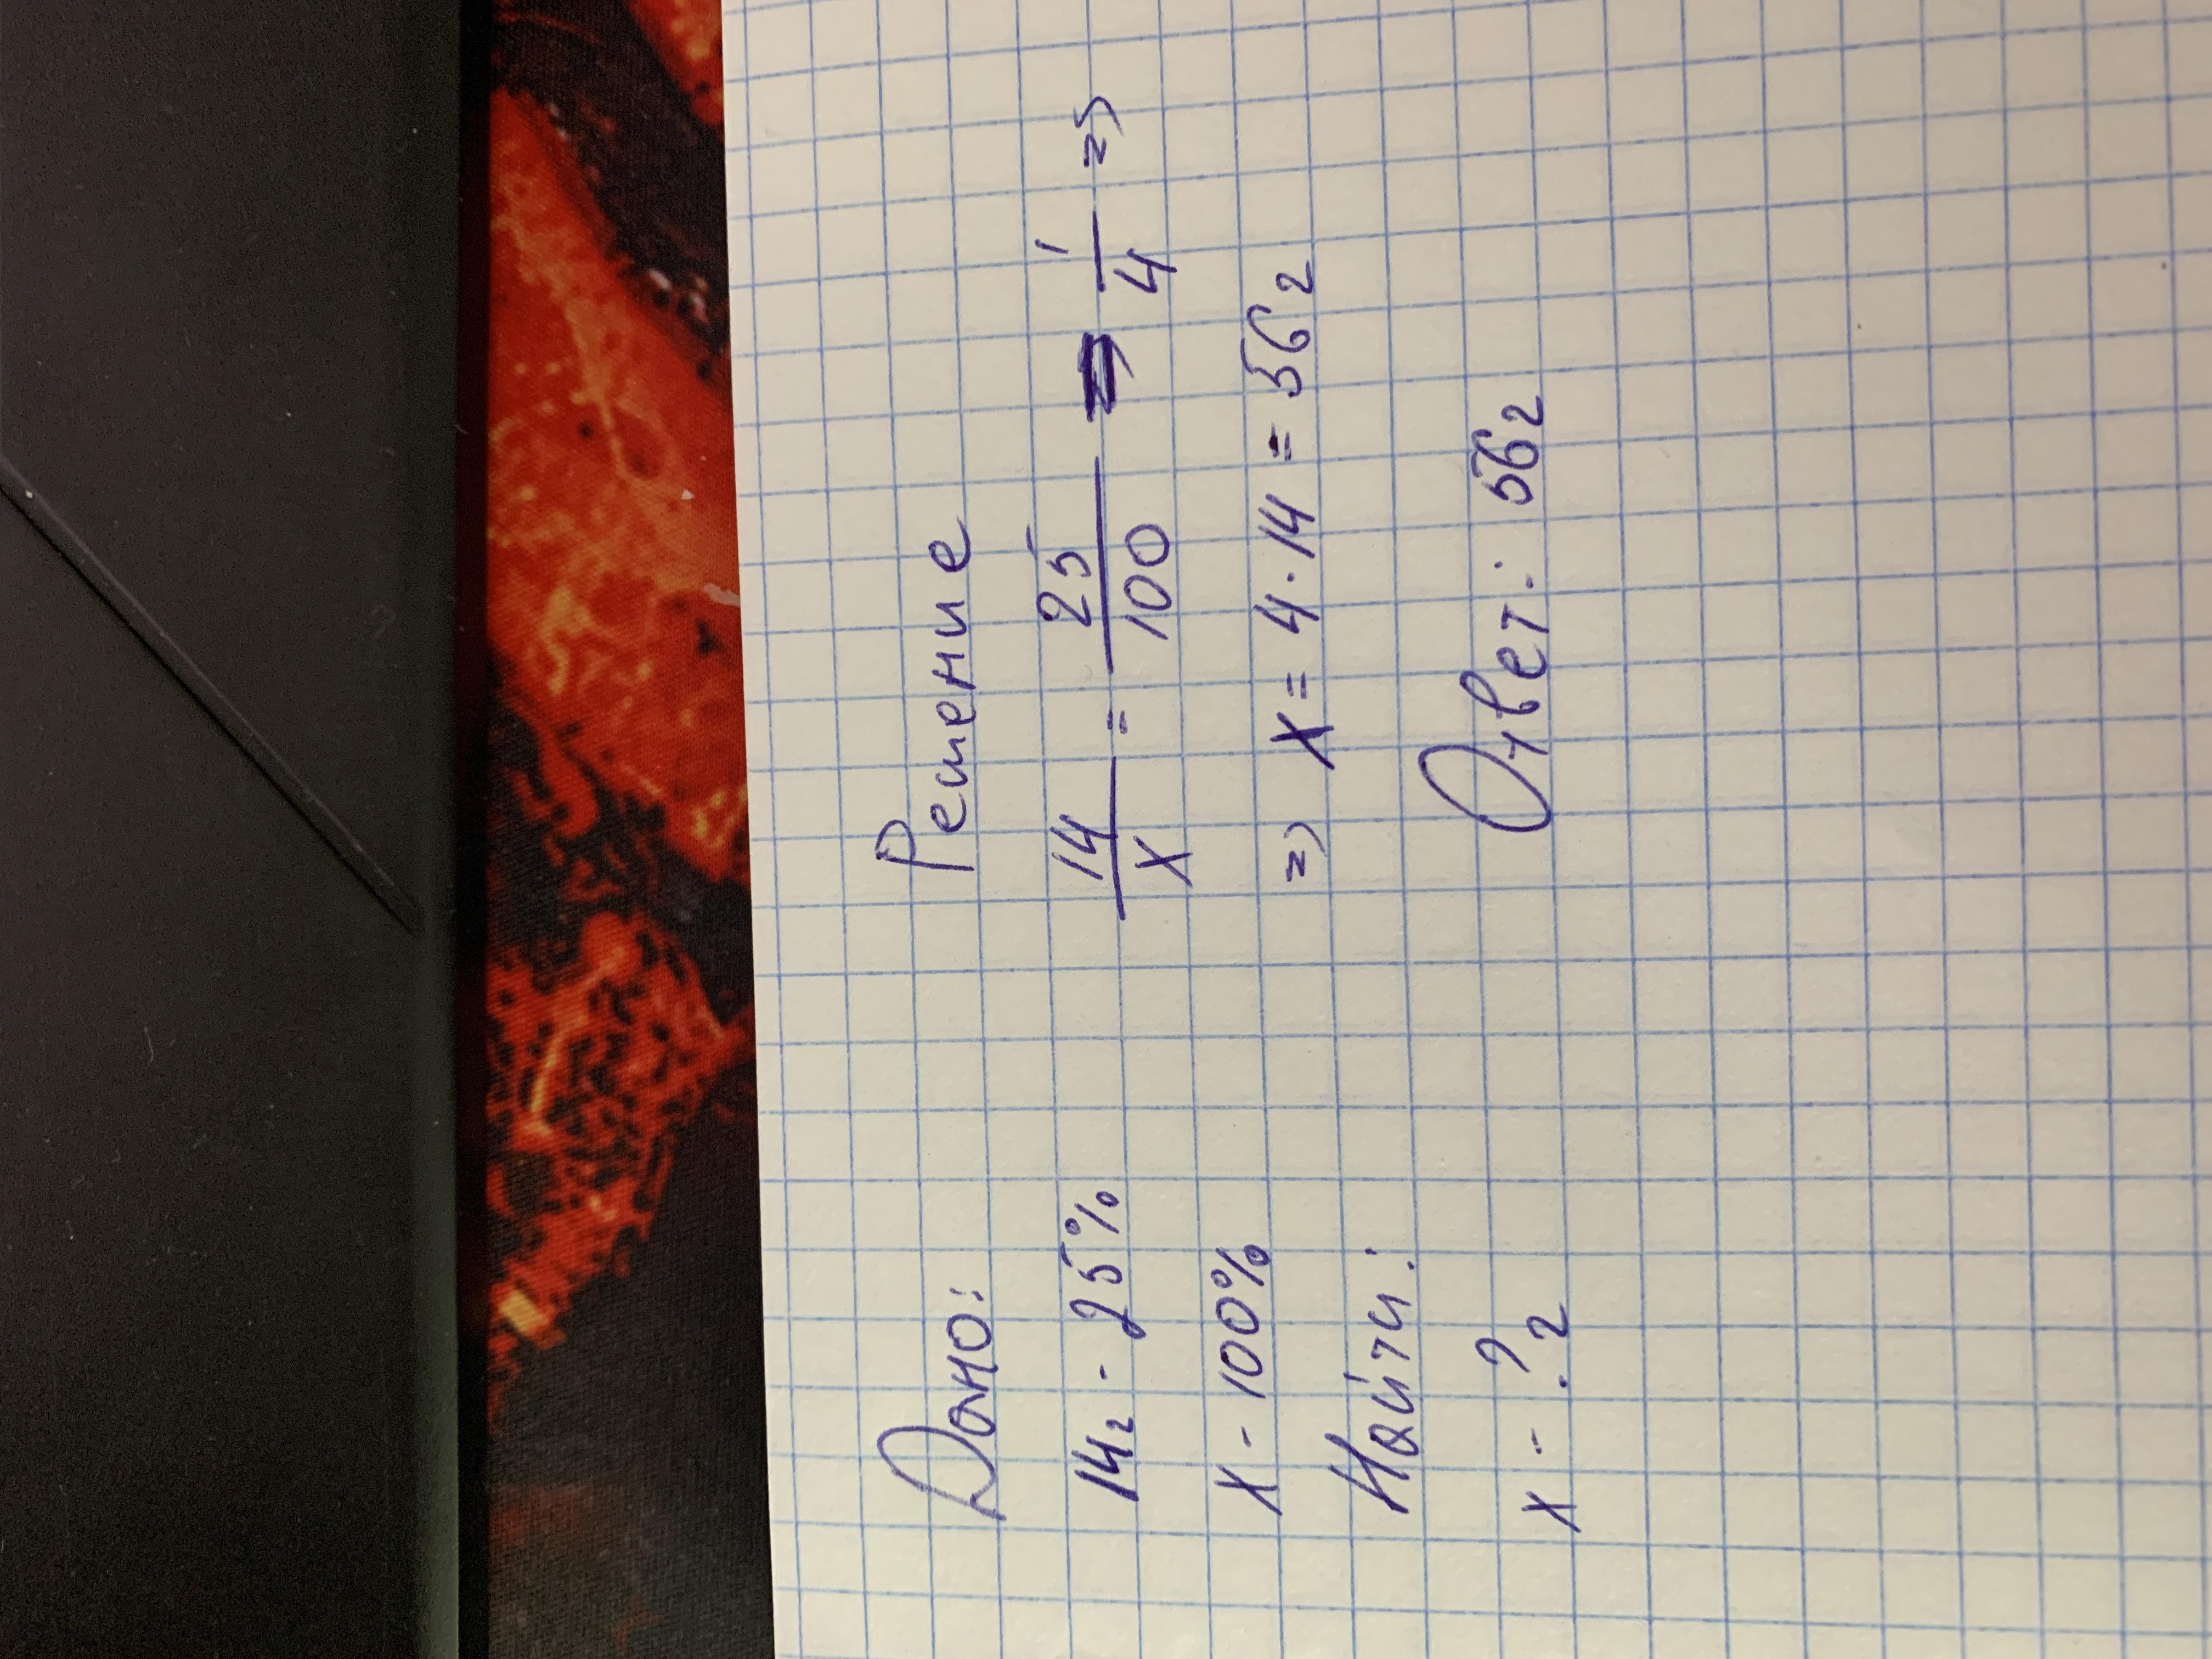 Дано:
14г - 25%
х - 100%
Найти:
х - ? г
Решение
14/х = 25/100 = 1/4 =>
=> х = 4 · 14 = 56 г
Ответ: 56 г